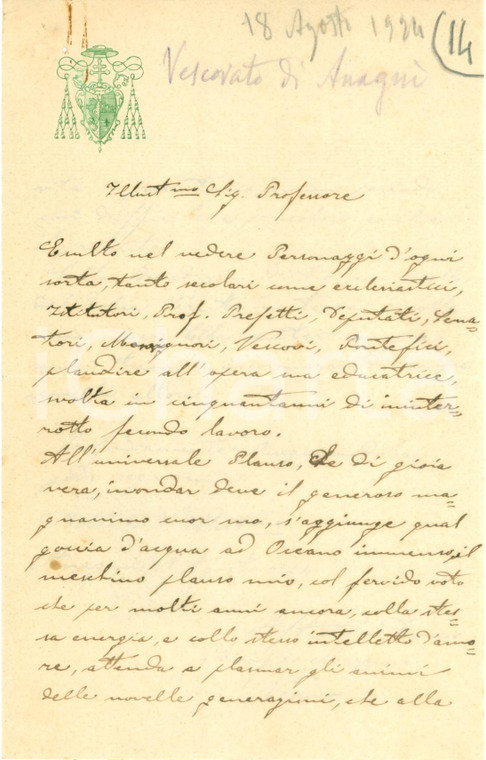 18 Agosto 1924 (14
Vescovato di Anagni
Illust.mo Sig. Professore
Esulto nel vedere Personaggi d'ogni
sorta, tanto secolari come ecclesiastici,
Istitutori, Prof. Prefetti, Deputati, Sena-
tori, Monsignori, Vescovi, Pontefici,
plaudire all'opera sua educatrice,
svolta in cinquantanni di ininter-
rotto fecondo lavoro.
All'universale Plauso, che di gioia
vera, inondar deve il generoso ma-
gnanimo cuor suo, s'aggiunge qual
goccia d'acqua ad Oceano immenso, il
meschino plauso mio, col fervido voto
che per molti anni ancora, colla stes-
sa energia, e collo stesso intelletto d'amo-
re, attenda a plasmar gli animi
delle novelle generazioni, che alla